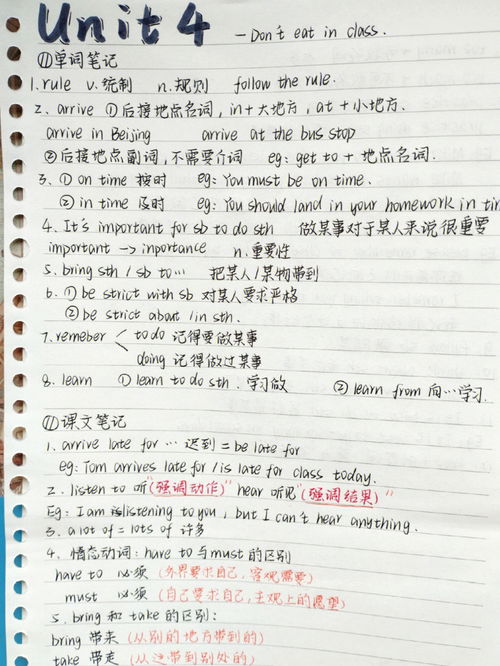 Unit 4 — Don't eat in class.
(1)单词笔记
1. rule v. 统制 n. 规则 follow the rule.
2. arrive ①后接地点名词, in+大地方, at+小地方.
arrive in Beijing arrive at the bus stop
②后接地点副词, 不需要介词 eg: get to + 地点名词.
3. ① on time 按时 eg: You must be on time.
② in time 及时 eg: You should land in your homework in tim
4. It's important for sb to do sth 做某事对于某人来说很重要
important → inportance n. 重要性
5. bring sth / sb to… 把某人/某物带到
6. ① be strict with sb 对某人要求严格
② be strict about / in sth.
7. remeber < to do 记得要做某事
doing 记得做过某事
8. learn ① learn to do sth. 学习做 ② learn from 向…学习.
(1)课文笔记
1. arrive late for … 迟到 = be late for
eg: Tom arrives late for / is late for class today.
2. listen to 听"(强调动作)" hear 听见"(强调结果)"
Eg: I am listening to you, but I can't hear anything.
3. a lot of = lots of 许多
4. 情态动词: have to 与 must 的区别
have to 必须 (外界要求自己, 客观需要)
must 必须 (自己要求自己, 主观上的愿望)
5. bring 和 take 的区别:
bring 带来 (从别的地方带到的)
take 带走 (从这带到别处的)